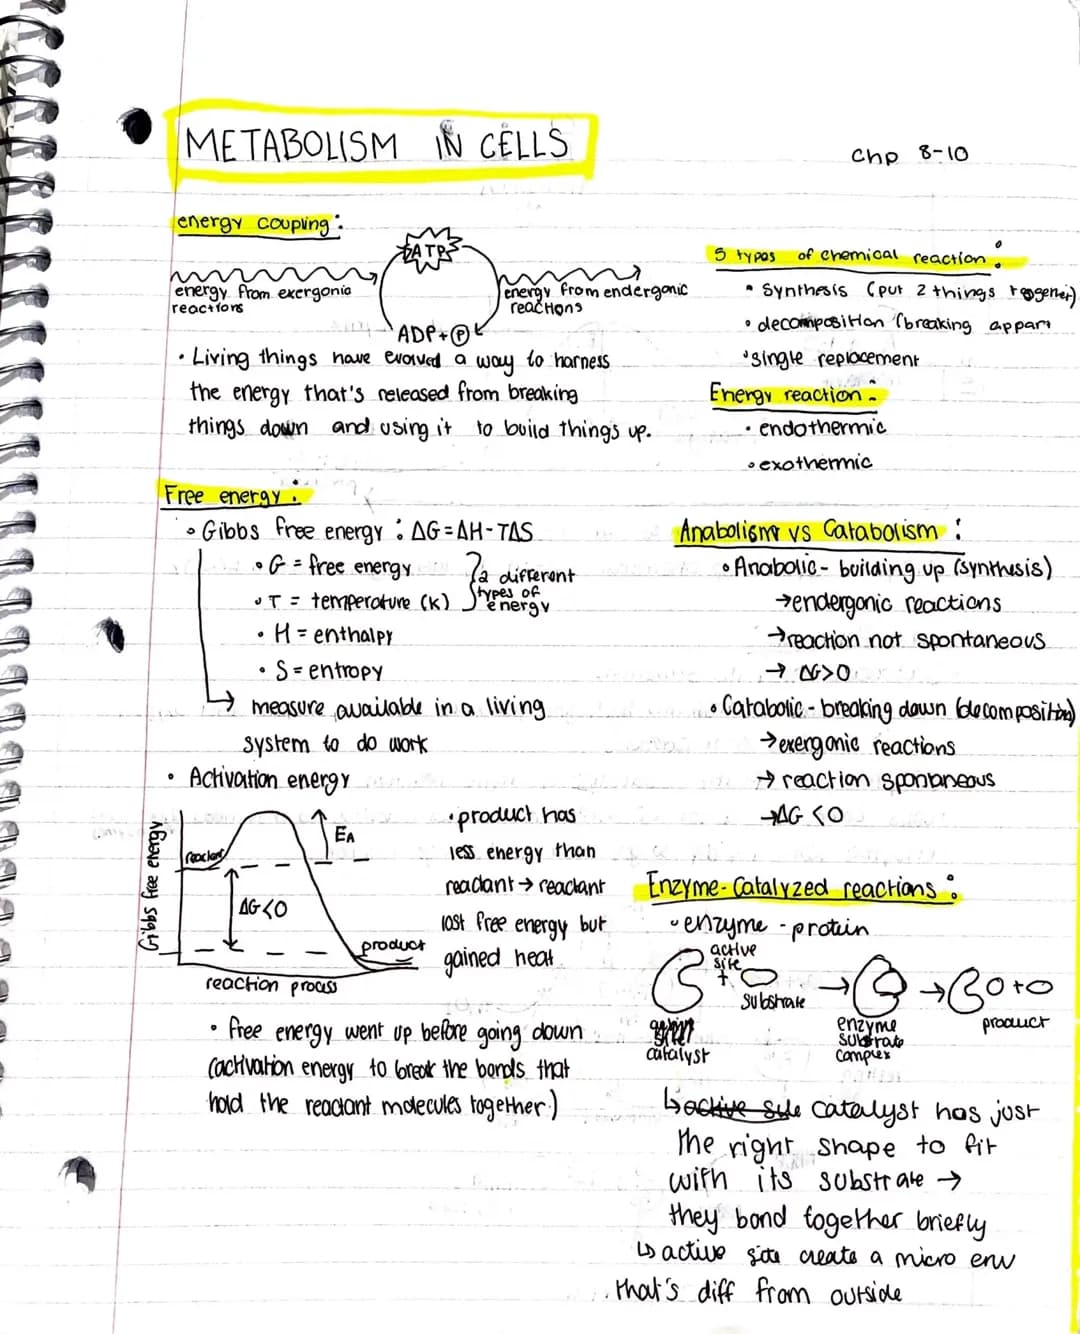 METABOLISM IN CELLS
Chp 8-10
energy coupling:
ATP
energy from exergonic
reactions
energy from endergonic
reactions
ADP+P
• Living things have evolved a way to harness
the energy that's released from breaking
things down and using it to build things up.
5 types of chemical reaction:
• Synthesis (put 2 things together)
• decomposition (breaking appart
• single replacement
Energy reaction:
• endothermic
• exothermic
Free energy:
• Gibbs free energy: ΔG=ΔH-TΔS
• G = free energy
• T = temperature (K)
2 different
types of
energy
• H = enthalpy
• S = entropy
→ measure available in a living
system to do work
• Activation energy
Gibbs free energy
reactant
EA
ΔG<0
product
reaction process
• product has
less energy than
reactant → reactant
lost free energy but
gained heat
• free energy went up before going down
(activation energy to break the bonds that
hold the reactant molecules together)
Anabolism vs Catabolism:
• Anabolic - building up (synthesis)
→ endergonic reactions
→ reaction not spontaneous
→ ΔG>0
• Catabolic - breaking down (decomposition)
→ exergonic reactions
→ reaction spontaneous
→ ΔG<0
Enzyme-Catalyzed reactions:
• enzyme - protein
active
site
+
substrate
catalyst
enzyme
substrate
complex
+
product
↳ active side catalyst has just
the right shape to fit
with its substrate →
they bond together briefly
↳ active site create a micro env
that's diff from outside